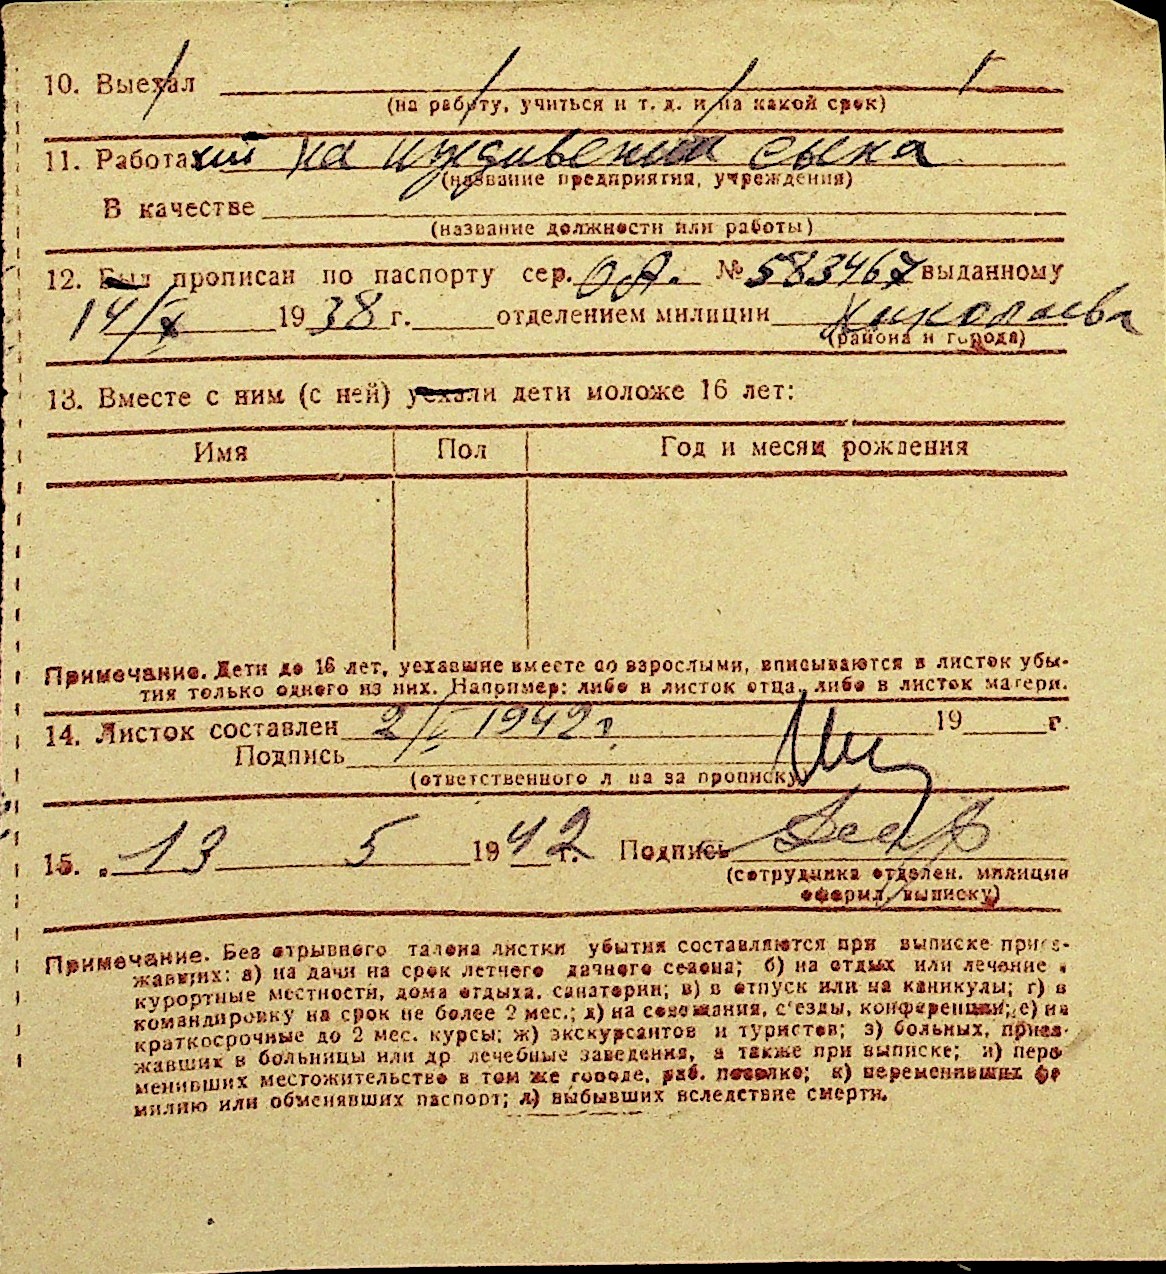 10. Выехал
(на работу, учиться и т. д. и на какой срок)
11. Работа на иждивении сына
(название предприятия, учреждения)
В качестве
(название должности или работы)
12. Был прописан по паспорту сер. О.А. № 583467 выданному
14/X 1938 г. отделением милиции Николаева
(района и города)
13. Вместе с ним (с ней) уехали дети моложе 16 лет:
Имя Пол Год и месяц рождения
Примечание. Дети до 16 лет, уехавшие вместе со взрослыми, вписываются в листок убы-
тия только одного из них. Например: либо в листок отца, либо в листок матери.
14. Листок составлен 2/V 1942 г. 19 г.
Подпись
(ответственного лица за прописку)
15. 13 5 1942 г. Подпись
(сотрудника отделен. милиции
оформл. выписку)
Примечание. Без отрывного талона листки убытия составляются при выписке приез-
жавших: а) на дачи на срок летнего дачного сезона; б) на отдых или лечение в
курортные местности, дома отдыха, санатории; в) в отпуск или на каникулы; г) в
командировку на срок не более 2 мес.; д) на совещания, с'езды, конференции; е) на
краткосрочные до 2 мес. курсы; ж) экскурсантов и туристов; з) больных, приез-
жавших в больницы или др лечебные заведения, а также при выписке; и) пере
менивших местожительство в том же городе, раб. поселке; к) переменивших фа
милию или обменявших паспорт; л) выбывших вследствие смерти.